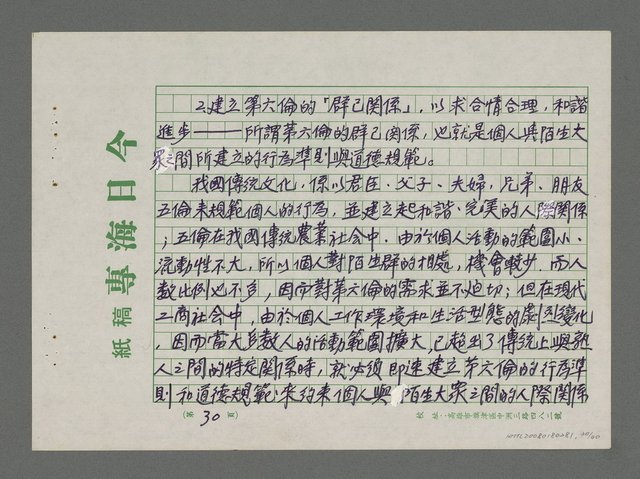 2.建立第六倫的「群己關係」，以求合情合理，和諧
進步——所謂第六倫的群己關係，也就是個人與陌生大
眾之間所建立的行為準則與道德規範。
我國傳統文化，係以君臣、父子、夫婦，兄弟、朋友
五倫來規範個人的行為，並建立起和諧、完美的人際關係
；五倫在我國傳統農業社會中，由於個人活動的範圍小、
流動性不大，所以個人對陌生群的相處，機會較少，而人
數比例也不多，因而對第六倫的需求並不迫切；但在現代
工商社會中，由於個人工作環境和生活型態的劇烈變化
，因而當大多數人的活動範圍擴大，已超出了傳統上與熟
人之間的特定關係時，就必須即速建立第六倫的行為準
則和道德規範，來約束個人與陌生大眾之間的人際關係
今日海專
稿紙
（第30頁）
校址：高雄市旗津區中洲三路四八二號